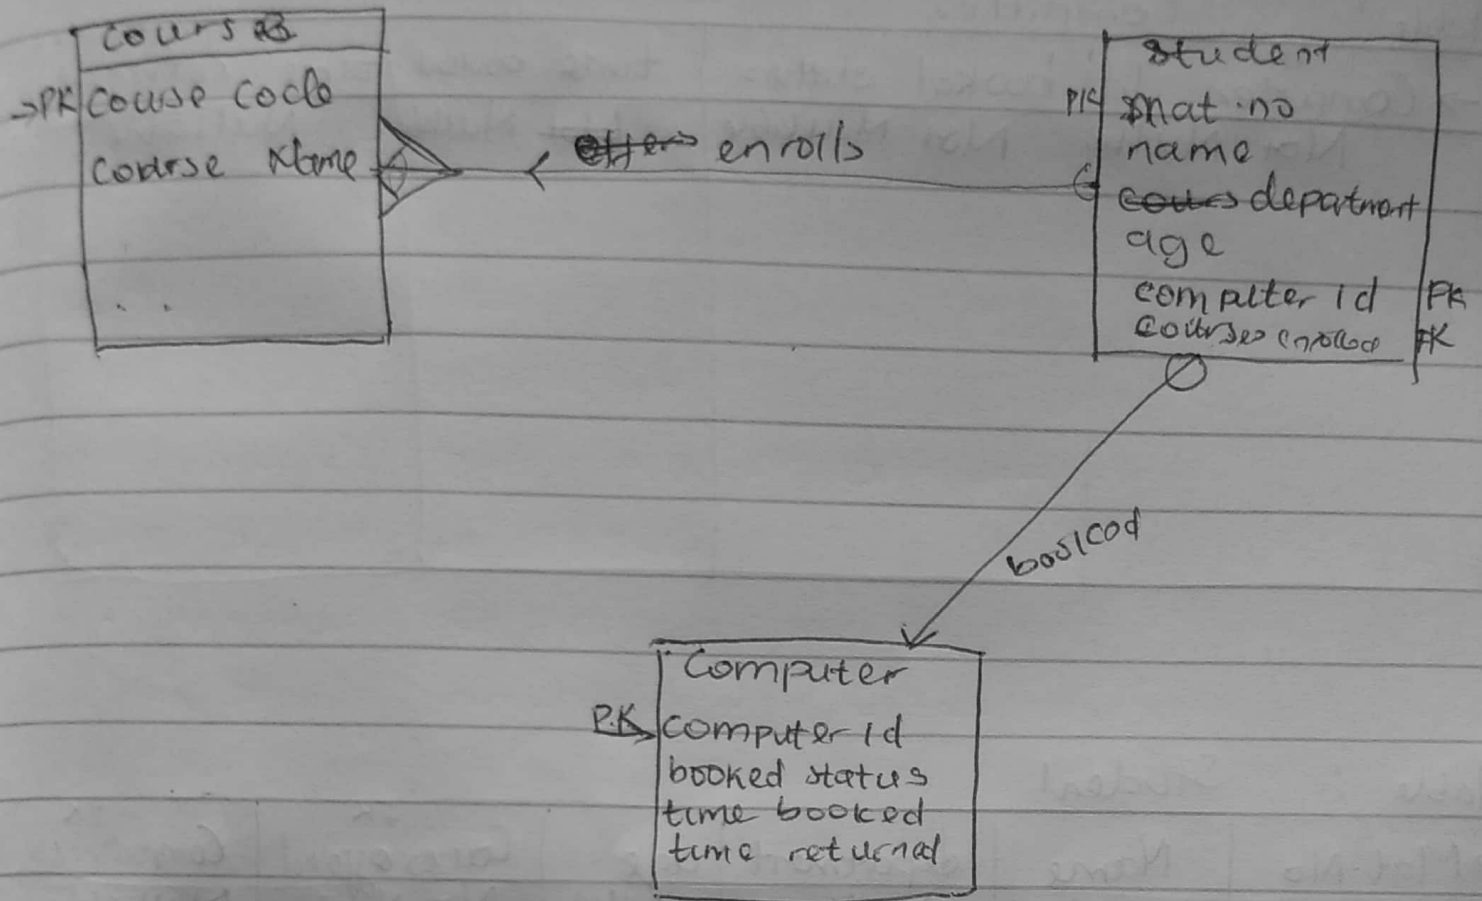 Courses
PK course code
course Name
. .
enrolls
student
PK mat no
name
department
age
computer id FK
courses enrolled FK
booked
Computer
P.K computer id
booked status
time booked
time returned
Name